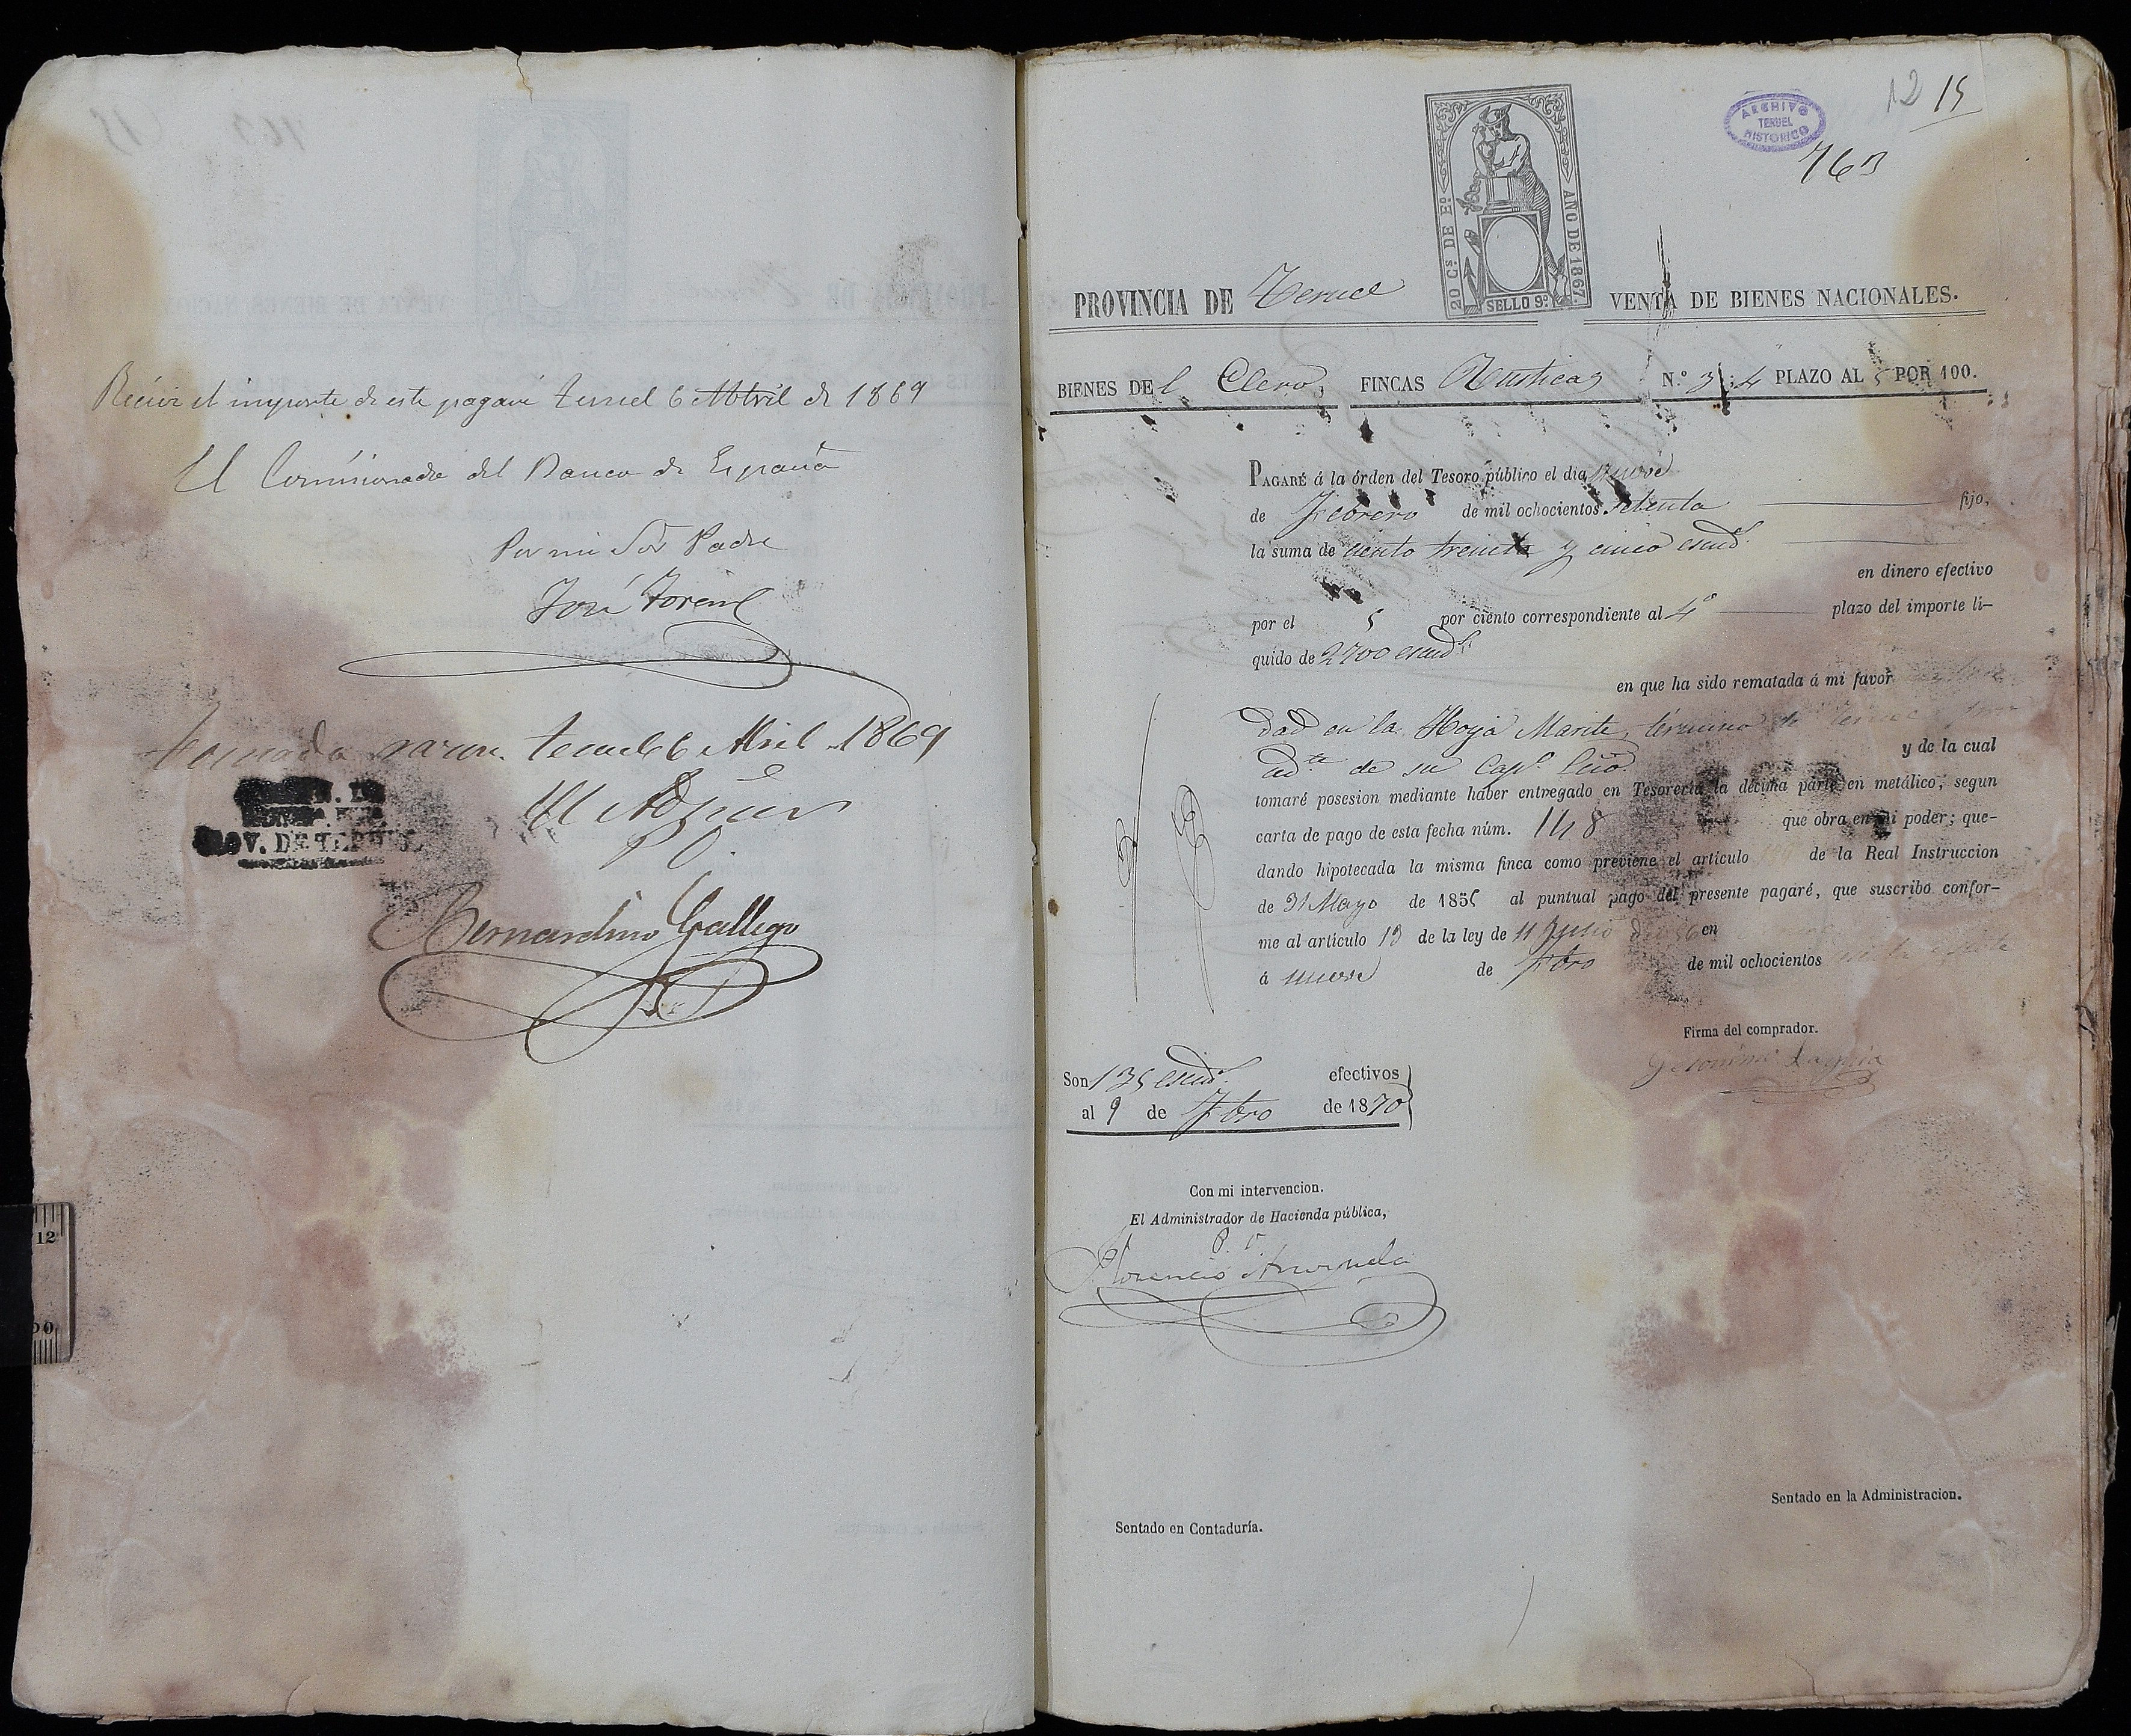 Recivi el importe de este pagaré Teruel 6 Abril de 1869
El Comisionado del Banco de España
Por mi Sor Padre
José Torené
tomada razon. Teruel 6 Abril 1869
El Admor
P O.
PROV. DE TERUEL
Bernardino Gallego
12 15
ARCHIVO
TERUEL
HISTORICO
763
20 Cs. DE Eo.
AÑO DE 1867.
SELLO 9º
PROVINCIA DE Teruel
VENTA DE BIENES NACIONALES.
BIENES DE l Clero, FINCAS Rusticas N.º 3 4 PLAZO AL 5 POR 100.
PAGARÉ á la órden del Tesoro público el dia nueve
de Febrero de mil ochocientos setenta fijo,
la suma de ciento treinta y cinco escuds.
en dinero efectivo
por el 5 por ciento correspondiente al 4º plazo del importe lí-
quido de 2700 escuds.
en que ha sido rematada á mi favor
dad en la Hoya Marite, término de Teruel
edte. de su Capo. Ecco. y de la cual
tomaré posesion mediante haber entregado en Tesorería la décima parte en metálico, segun
carta de pago de esta fecha núm. 148 que obra en mi poder; que-
dando hipotecada la misma finca como previene el artículo de la Real Instruccion
de 31 Mayo de 1855 al puntual pago del presente pagaré, que suscribo confor-
me al artículo 13 de la ley de 11 Julio de 56 en
á nueve de Fbro de mil ochocientos sesenta y siete
Firma del comprador.
Geronimo Laguia
Son 135 escuds. efectivos
al 9 de Fbro de 1870
Con mi intervencion.
El Administrador de Hacienda pública,
P. O.
Florencio
Sentado en la Administracion.
Sentado en Contaduría.
12